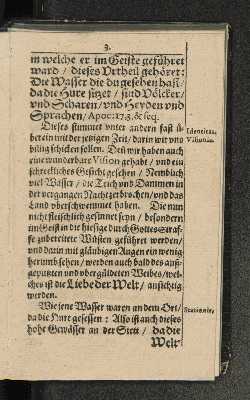 3.
in welche er im Geiste geführet
ward / dieses Urtheil gehöret:
Die Wasser die du gesehen hast/
da die Hure sitzet / sind Völcker/
und Scharen/ und Heyden und
Sprachen / Apoc: 17.3. & seq.
Dieses stimmet unter andern fast ü-
berein mit der jetzigen Zeit/ darin wir uns
billig schicken sollen. Deñ wir haben auch
eine wunderbare Vision gehabt / und ein
schreckliches Gesicht gesehen / Nemblich
viel Wasser / die Teich und Dammen in
der vergangen Nacht zerbrochen/ und das
Land überschwemmet haben. Die nun
nicht fleischlich gesinnet seyn / besondern
im Geist in die hiesige durch Gottes Straf-
fe zubereitete Wüsten geführet werden/
und darin mit gläubigen Augen ein wenig
herumb sehen / werden auch bald des auf-
geputzten und vbergüldeten Weibes/ wel-
ches ist die Liebe der Welt / ansichtig
werden.
Wie jene Wasser waren an dem Ort/
da die Hure gesessen : Also ist auch dieses
hohe Gewässer an der Stett / da die
Welt
Identitas
Visionis.
Stationis,